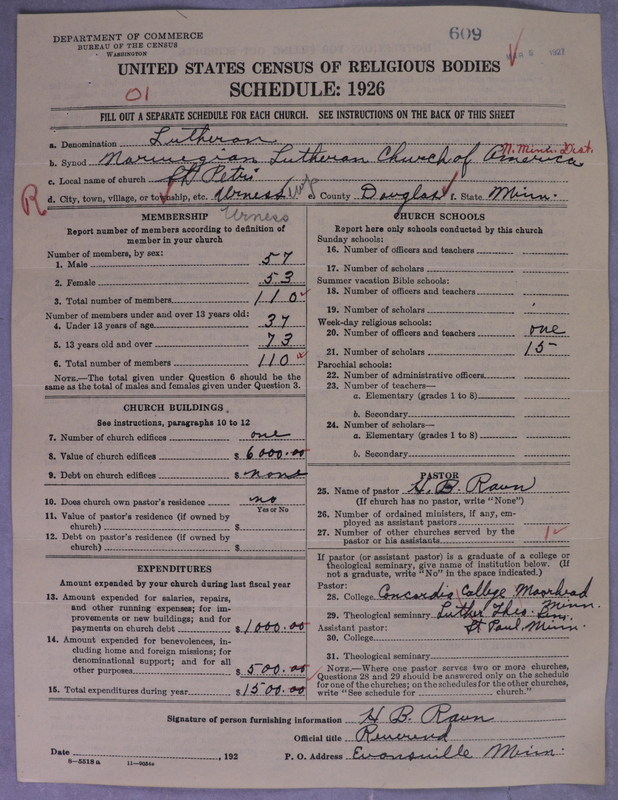 DEPARTMENT OF COMMERCE
BUREAU OF THE CENSUS
WASHINGTON
609
1927
UNITED STATES CENSUS OF RELIGIOUS BODIES
SCHEDULE: 1926
01
FILL OUT A SEPARATE SCHEDULE FOR EACH CHURCH. SEE INSTRUCTIONS ON THE BACK OF THIS SHEET
a. Denomination Lutheran
b. Synod Norwegian Lutheran Church of America N. Minn. Dist.
c. Local name of church St Petri
R d. City, town, village, or township, etc. Urness e. County Douglas f. State Minn.
Urness
MEMBERSHIP
Report number of members according to definition of
member in your church
Number of members, by sex:
1. Male 57
2. Female 53
3. Total number of members 110
Number of members under and over 13 years old:
4. Under 13 years of age 37
5. 13 years old and over 73
6. Total number of members 110
NOTE.—The total given under Question 6 should be
the same as the total of males and females given under Question 3.
CHURCH BUILDINGS
See instructions, paragraphs 10 to 12
7. Number of church edifices one
8. Value of church edifices $ 6000.00
9. Debt on church edifices $ none
10. Does church own pastor's residence no
Yes or No
11. Value of pastor's residence (if owned by
church) $
12. Debt on pastor's residence (if owned by
church) $
EXPENDITURES
Amount expended by your church during last fiscal year
13. Amount expended for salaries, repairs,
and other running expenses; for im-
provements or new buildings; and for
payments on church debt $ 1000.00
14. Amount expended for benevolences, in-
cluding home and foreign missions; for
denominational support; and for all
other purposes $ 500.00
15. Total expenditures during year $ 1500.00
CHURCH SCHOOLS
Report here only schools conducted by this church
Sunday schools:
16. Number of officers and teachers
17. Number of scholars
Summer vacation Bible schools:
18. Number of officers and teachers
19. Number of scholars
Week-day religious schools:
20. Number of officers and teachers one
21. Number of scholars 15
Parochial schools:
22. Number of administrative officers
23. Number of teachers—
a. Elementary (grades 1 to 8)
b. Secondary
24. Number of scholars—
a. Elementary (grades 1 to 8)
b. Secondary
PASTOR
25. Name of pastor H. B. Raun
(If church has no pastor, write "None")
26. Number of ordained ministers, if any, em-
ployed as assistant pastors
27. Number of other churches served by the
pastor or his assistants 1
If pastor (or assistant pastor) is a graduate of a college or
theological seminary, give name of institution below. (If
not a graduate, write "No" in the space indicated.)
Pastor:
28. College Concordia College Moorhead Minn.
29. Theological seminary Luther Theo. Sem.
St Paul Minn.
Assistant pastor:
30. College
31. Theological seminary
NOTE.—Where one pastor serves two or more churches,
Questions 28 and 29 should be answered only on the schedule
for one of the churches; on the schedules for the other churches,
write "See schedule for church."
Signature of person furnishing information H B. Raun
Official title Reverend
Date , 192 P. O. Address Evansville Minn.
8—5518 a 11—9054